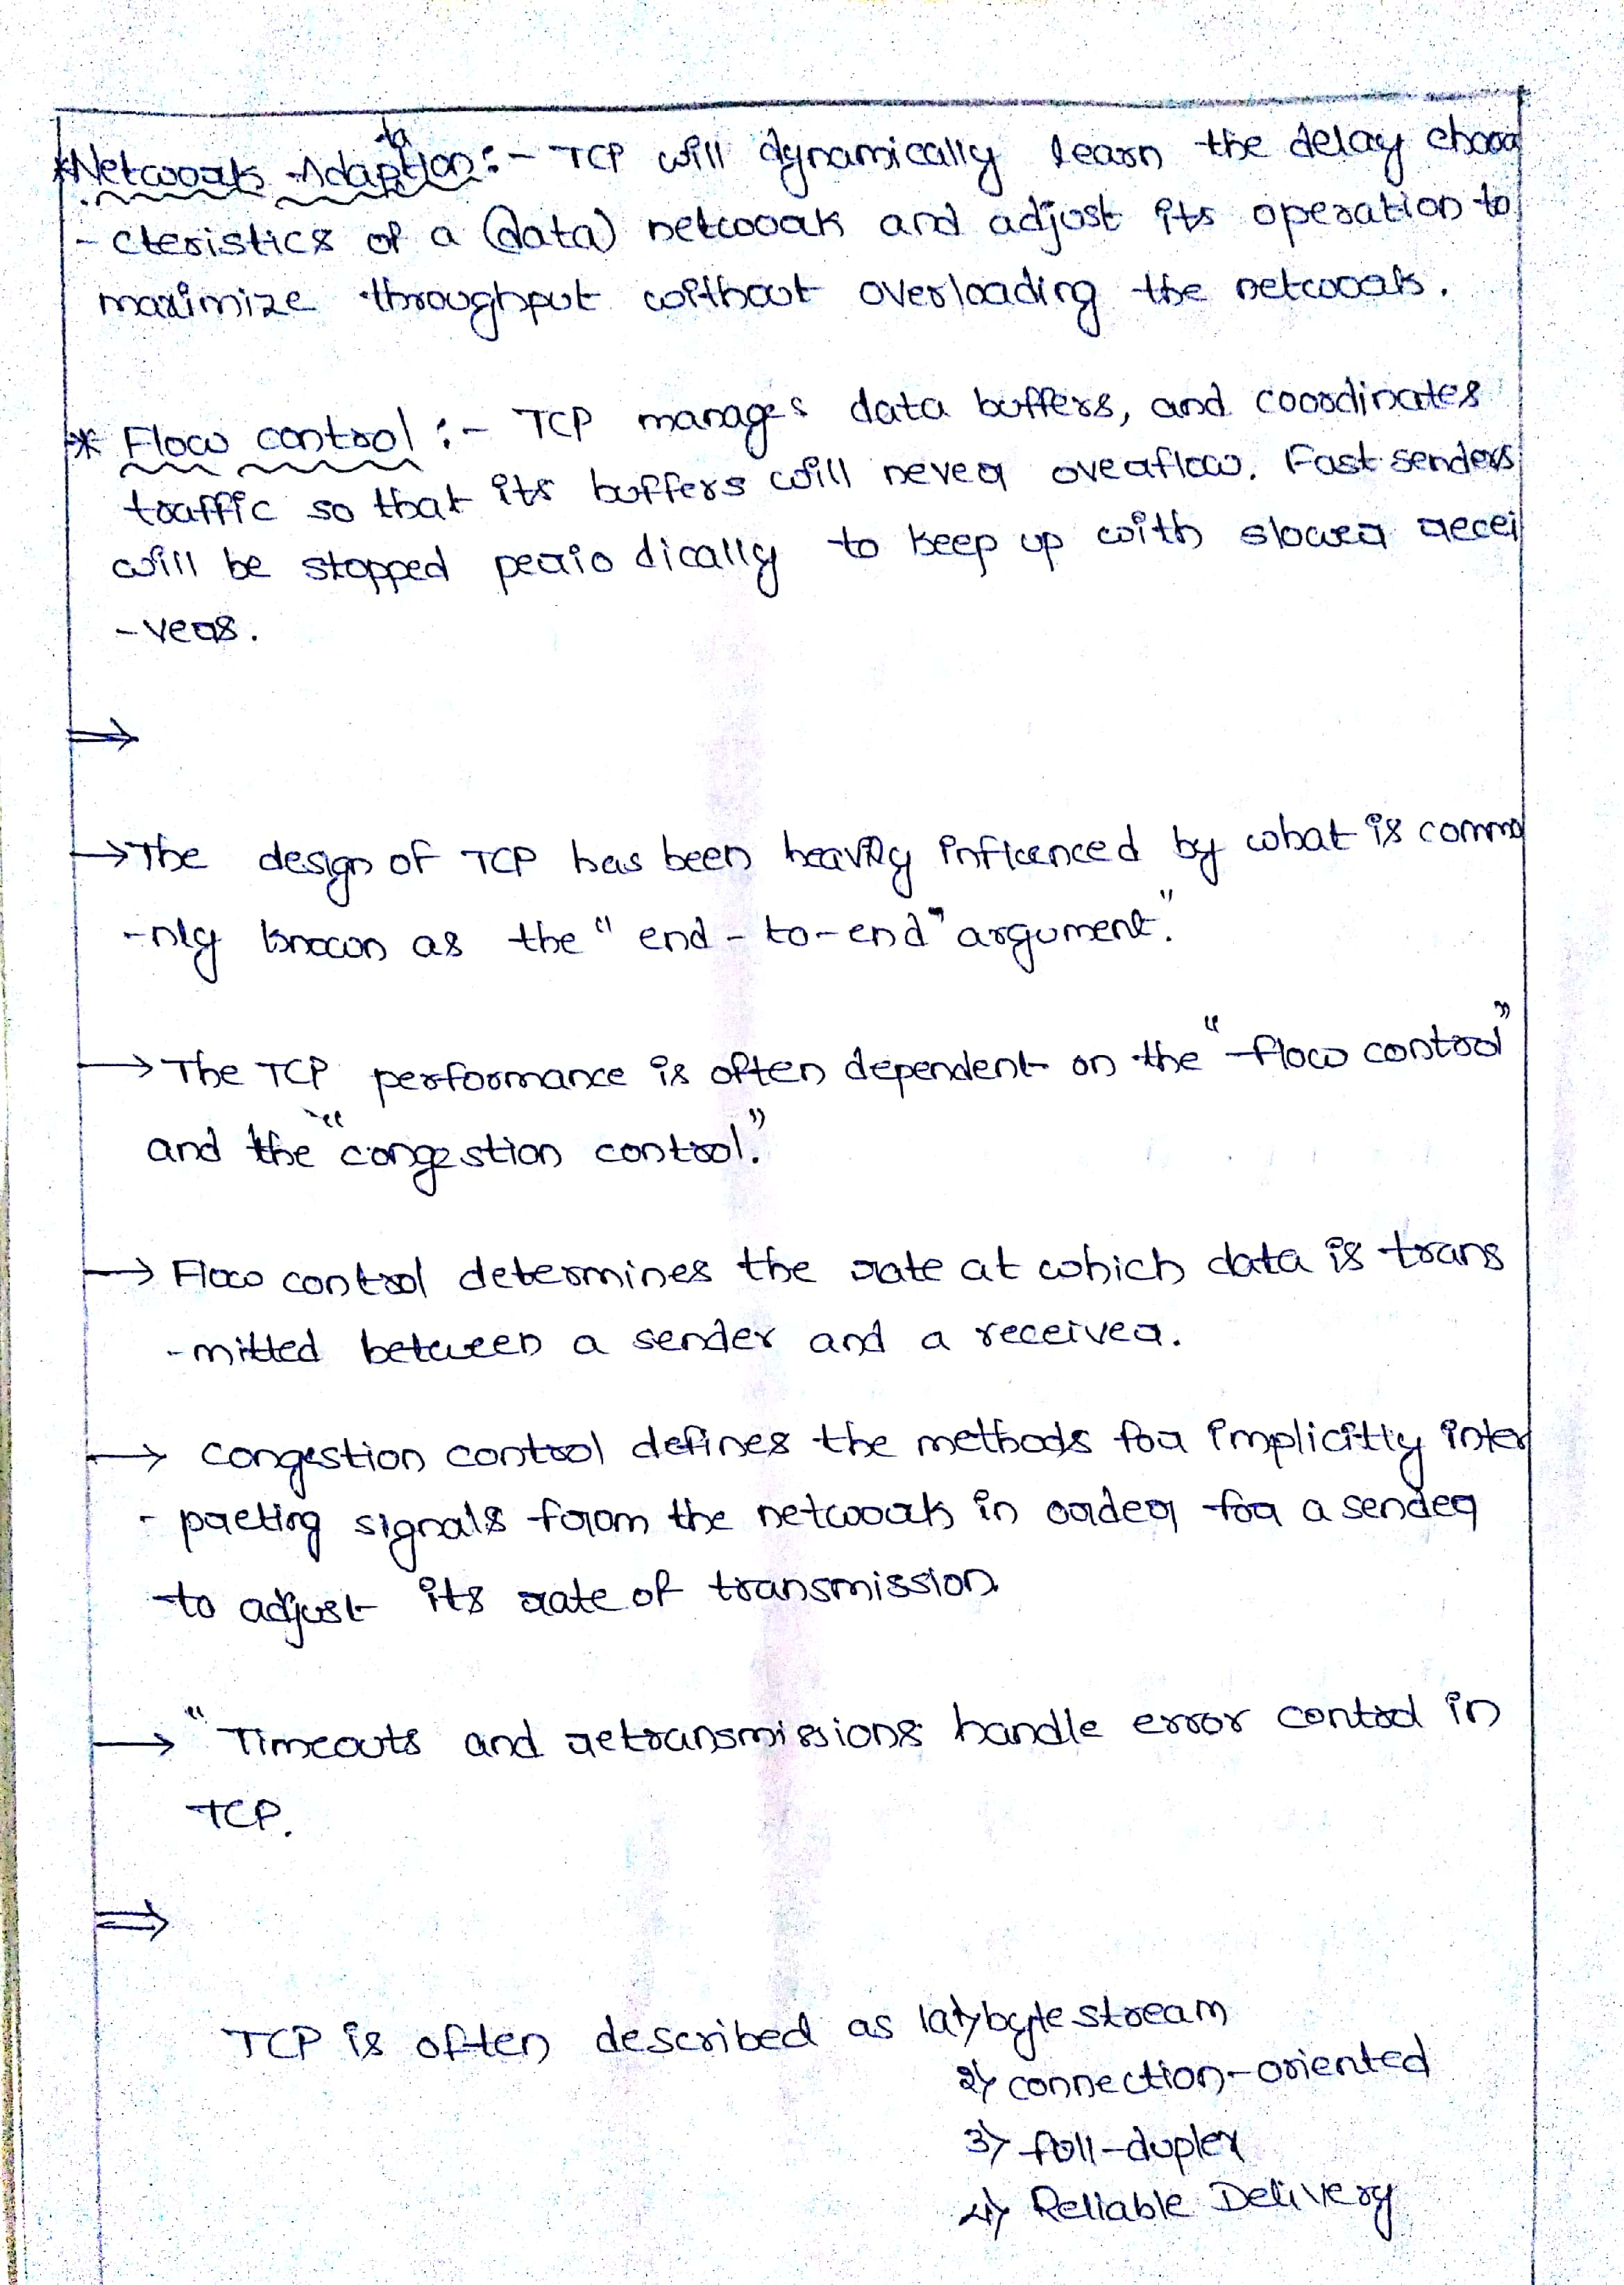 *Network Adaption :- TCP will dynamically learn the delay chara
ta
- cteristics of a (data) network and adjust its operation to
maximize throughput without overloading the network.
* Flow control :- TCP manages data buffers, and coordinates
traffic so that its buffers will never overflow. Fast senders
will be stopped periodically to keep up with slower recei
-vers.
⇒
→ The design of TCP has been heavily influenced by what is commo
-nly known as the "end-to-end" argument."
→ The TCP performance is often dependent on the "flow control"
and the "congestion control."
→ Flow control determines the rate at which data is trans
-mitted between a sender and a receiver.
→ congestion control defines the methods for implicitly inter
- preting signals from the network in order for a sender
to adjust its rate of transmission
→ "Timeouts and retransmissions handle error control in
TCP.
⇒
TCP is often described as 1) byte stream
2) connection-oriented
3) full-duplex
4) Reliable Delivery